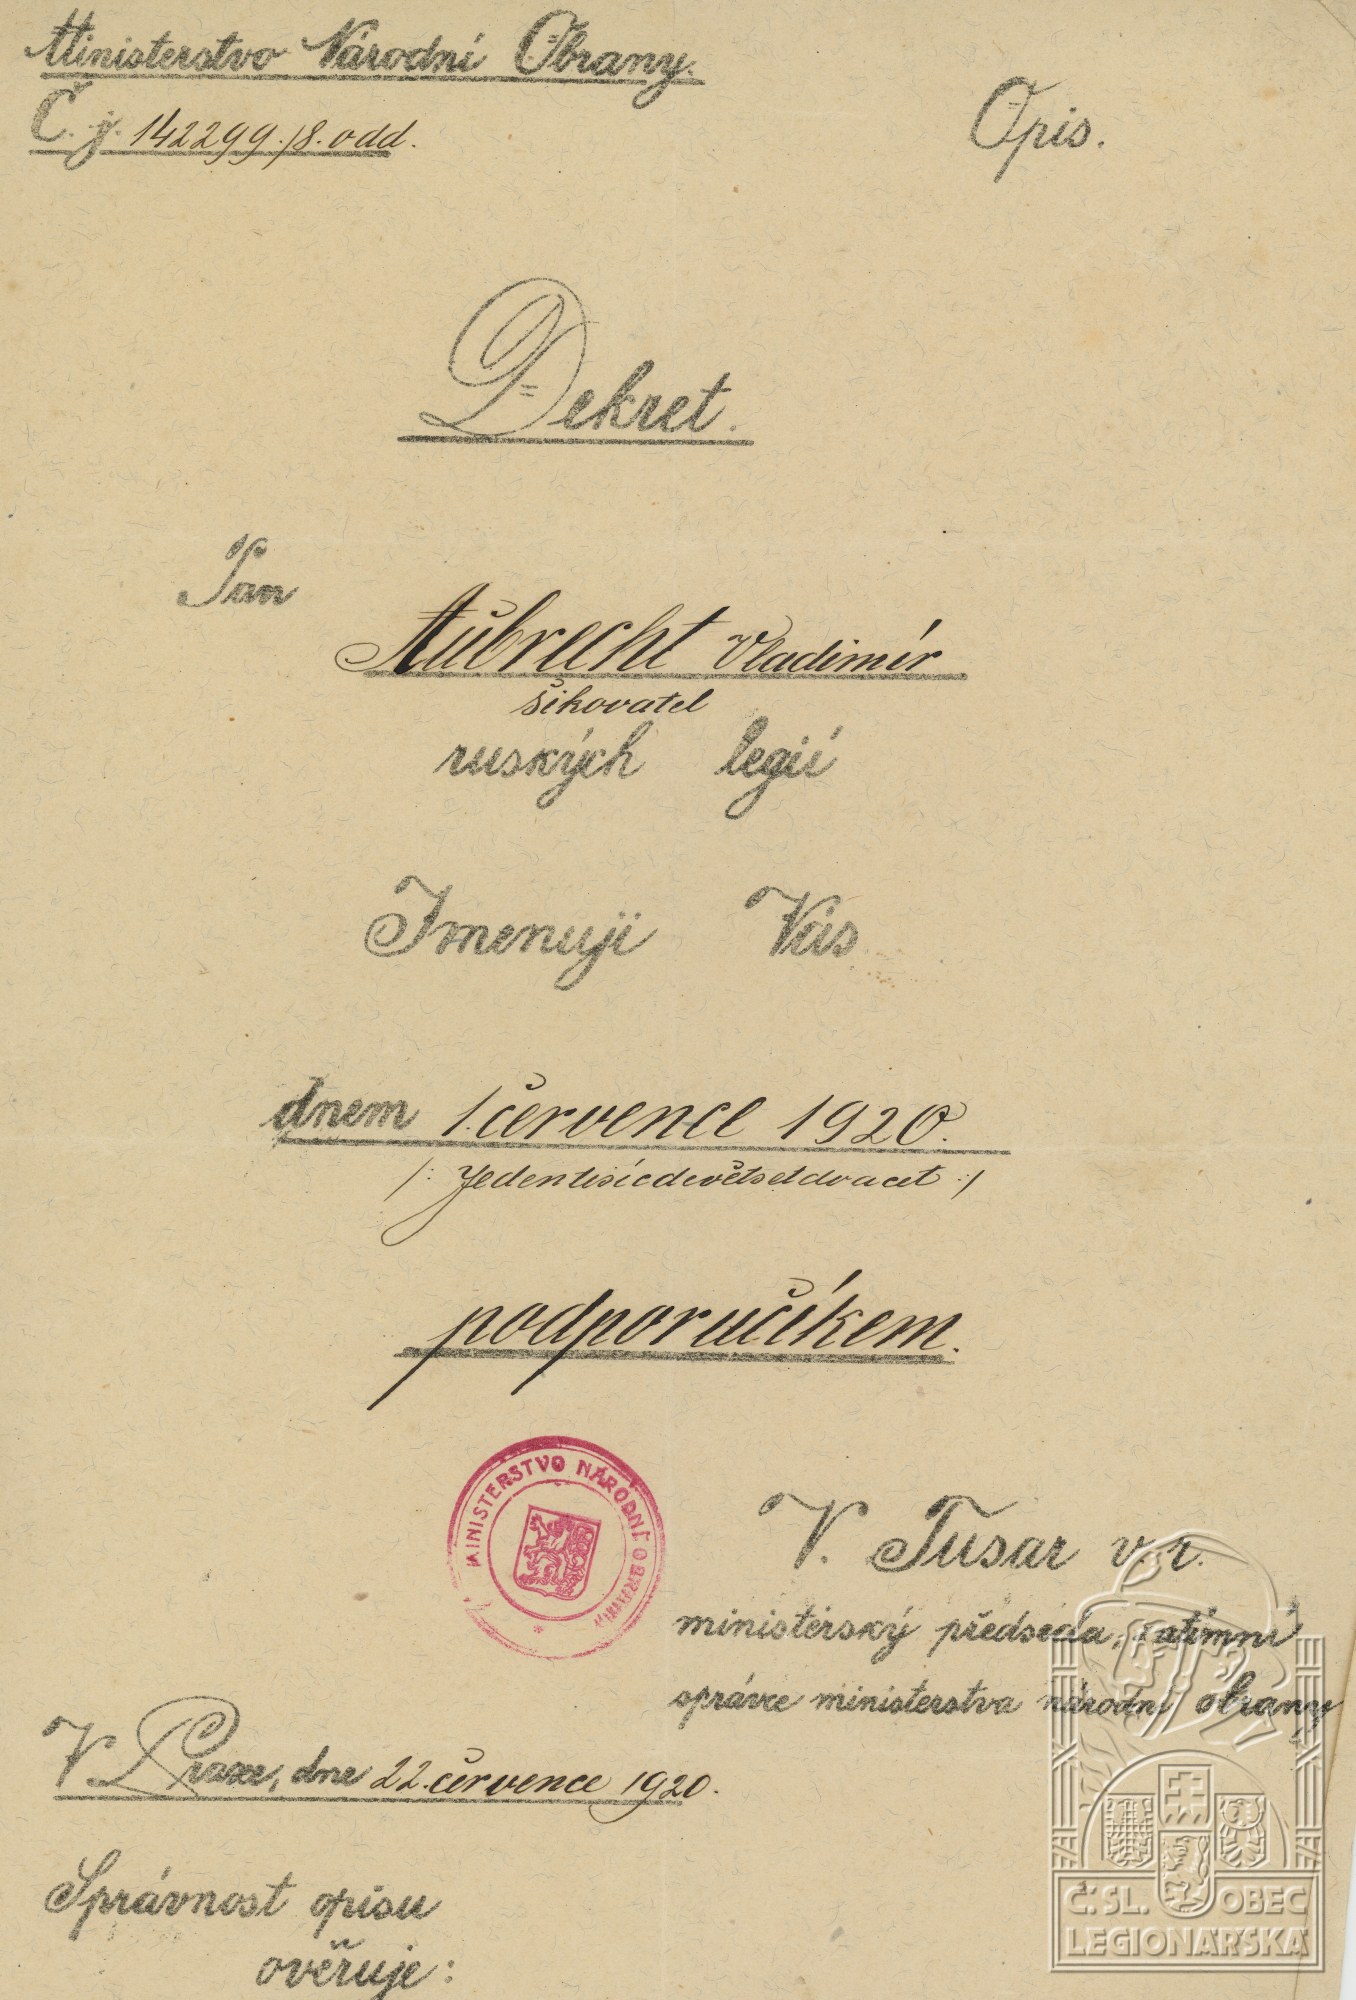 Ministerstvo Národní Obrany.
Č. j. 142299./8.odd.
Opis.
Dekret.
Pan
Aubrecht Vladimír
šikovatel
ruských legií
Jmenuji Vás
dnem 1.července 1920.
/: Jedentisícdevětsetdvacet :/
podporučíkem.
MINISTERSTVO NÁRODNÍ OBRANY
V. Tusar v. r.
ministerský předseda, zatímní
správce ministerstva národní obrany
V Praze, dne 22.července 1920.
Správnost opisu
ověřuje:
Č.SL. OBEC
LEGIONÁŘSKÁ